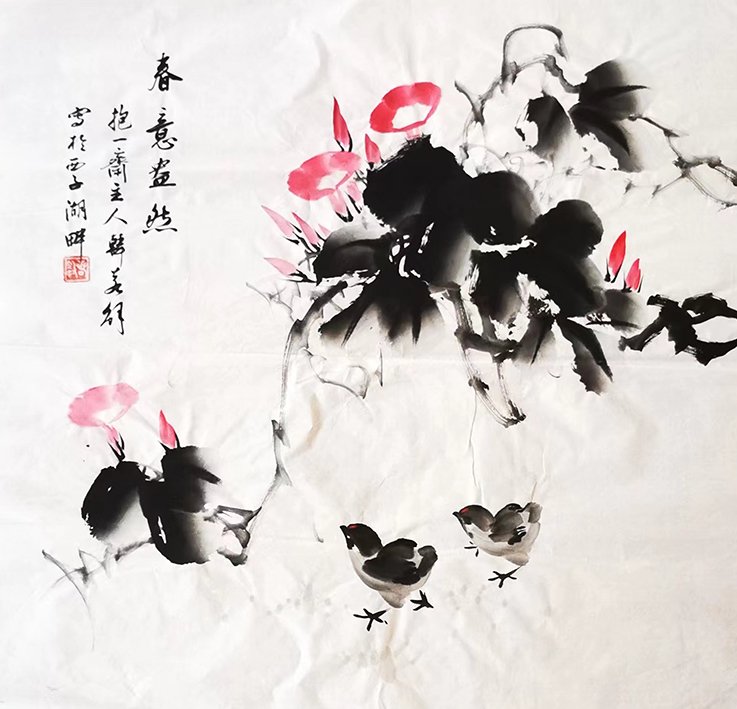 春意盎然
抱一齋主人
寫於西子湖畔